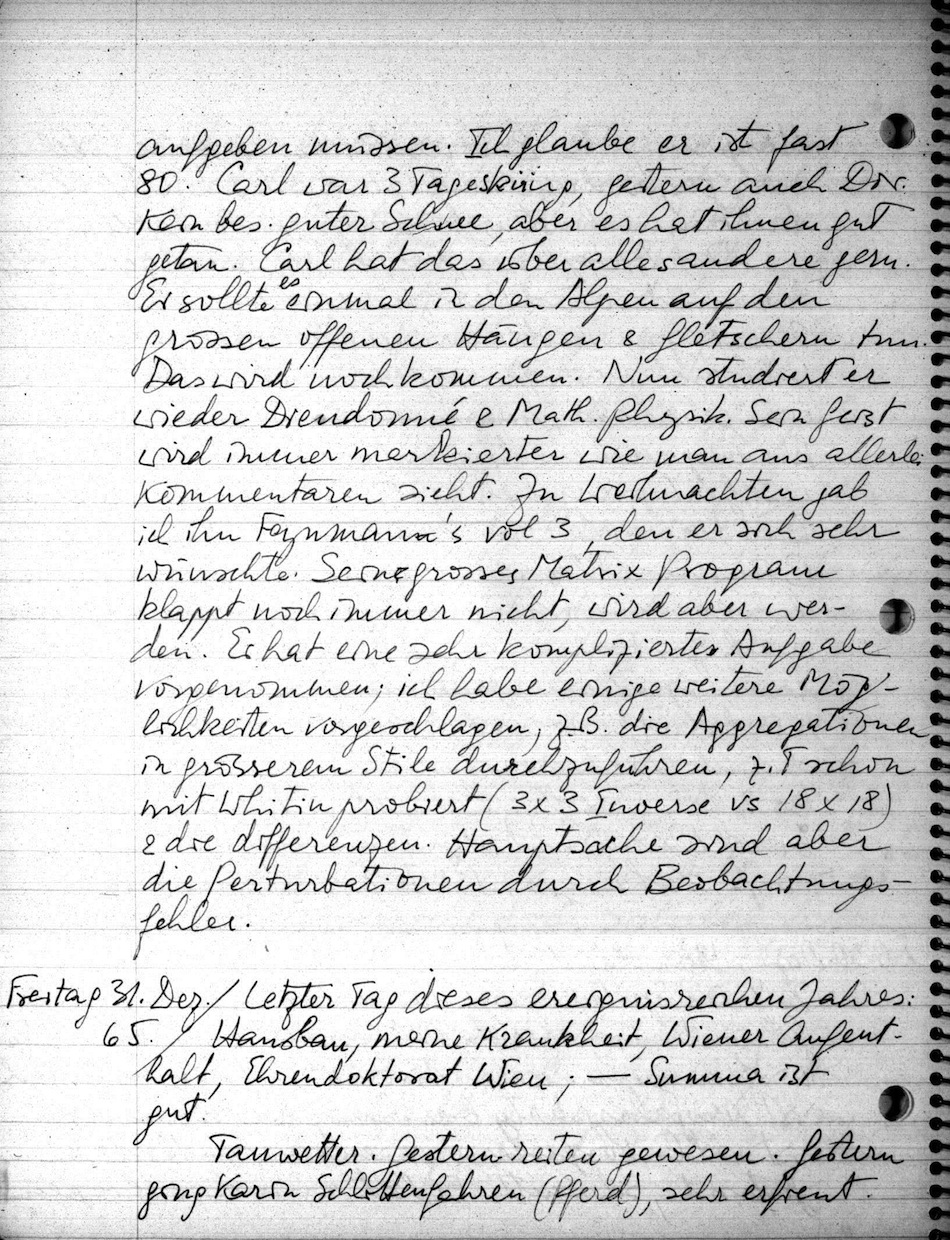 aufgeben müssen. Ich glaube er ist fast
80. Carl war 3 Tage skiing, gestern auch Dor.
Kein bes. guter Schnee, aber es hat ihnen gut
getan. Carl hat das über alles andere gern.
Er sollte es einmal in den Alpen auf den
grossen offenen Hängen & Gletschern tun.
Das wird noch kommen. Nun studiert er
wieder Dieudonné & Math. Physik. Sein Geist
wird immer markierter wie man aus allerlei
Kommentaren sieht. Zu Weihnachten gab
ich ihm Feynmann's vol 3, den er sich sehr
wünschte. Seine grosses Matrix Program
klappt noch immer nicht, wird aber wer-
den. Er hat eine sehr komplizierte Aufgabe
vorgenommen; ich habe einige weitere Mög-
lichkeiten vorgeschlagen, z.B. die Aggregationen
in grösserem Stile durchzuführen, z.T schon
mit Whitin probiert (3x3 Inverse vs 18x18)
& die Differenzen. Hauptsache sind aber
die Perturbationen durch Beobachtungs-
fehler.
Freitag 31. Dez. / Letzter Tag dieses ereignisreichen Jahres:
65. / Hausbau, meine Krankheit, Wiener Aufent-
halt, Ehrendoktorat Wien; — Summa ist
gut.
Tauwetter. Gestern reiten gewesen. Gestern
ging Karin Schlittenfahren (Pferd), sehr erfreut.